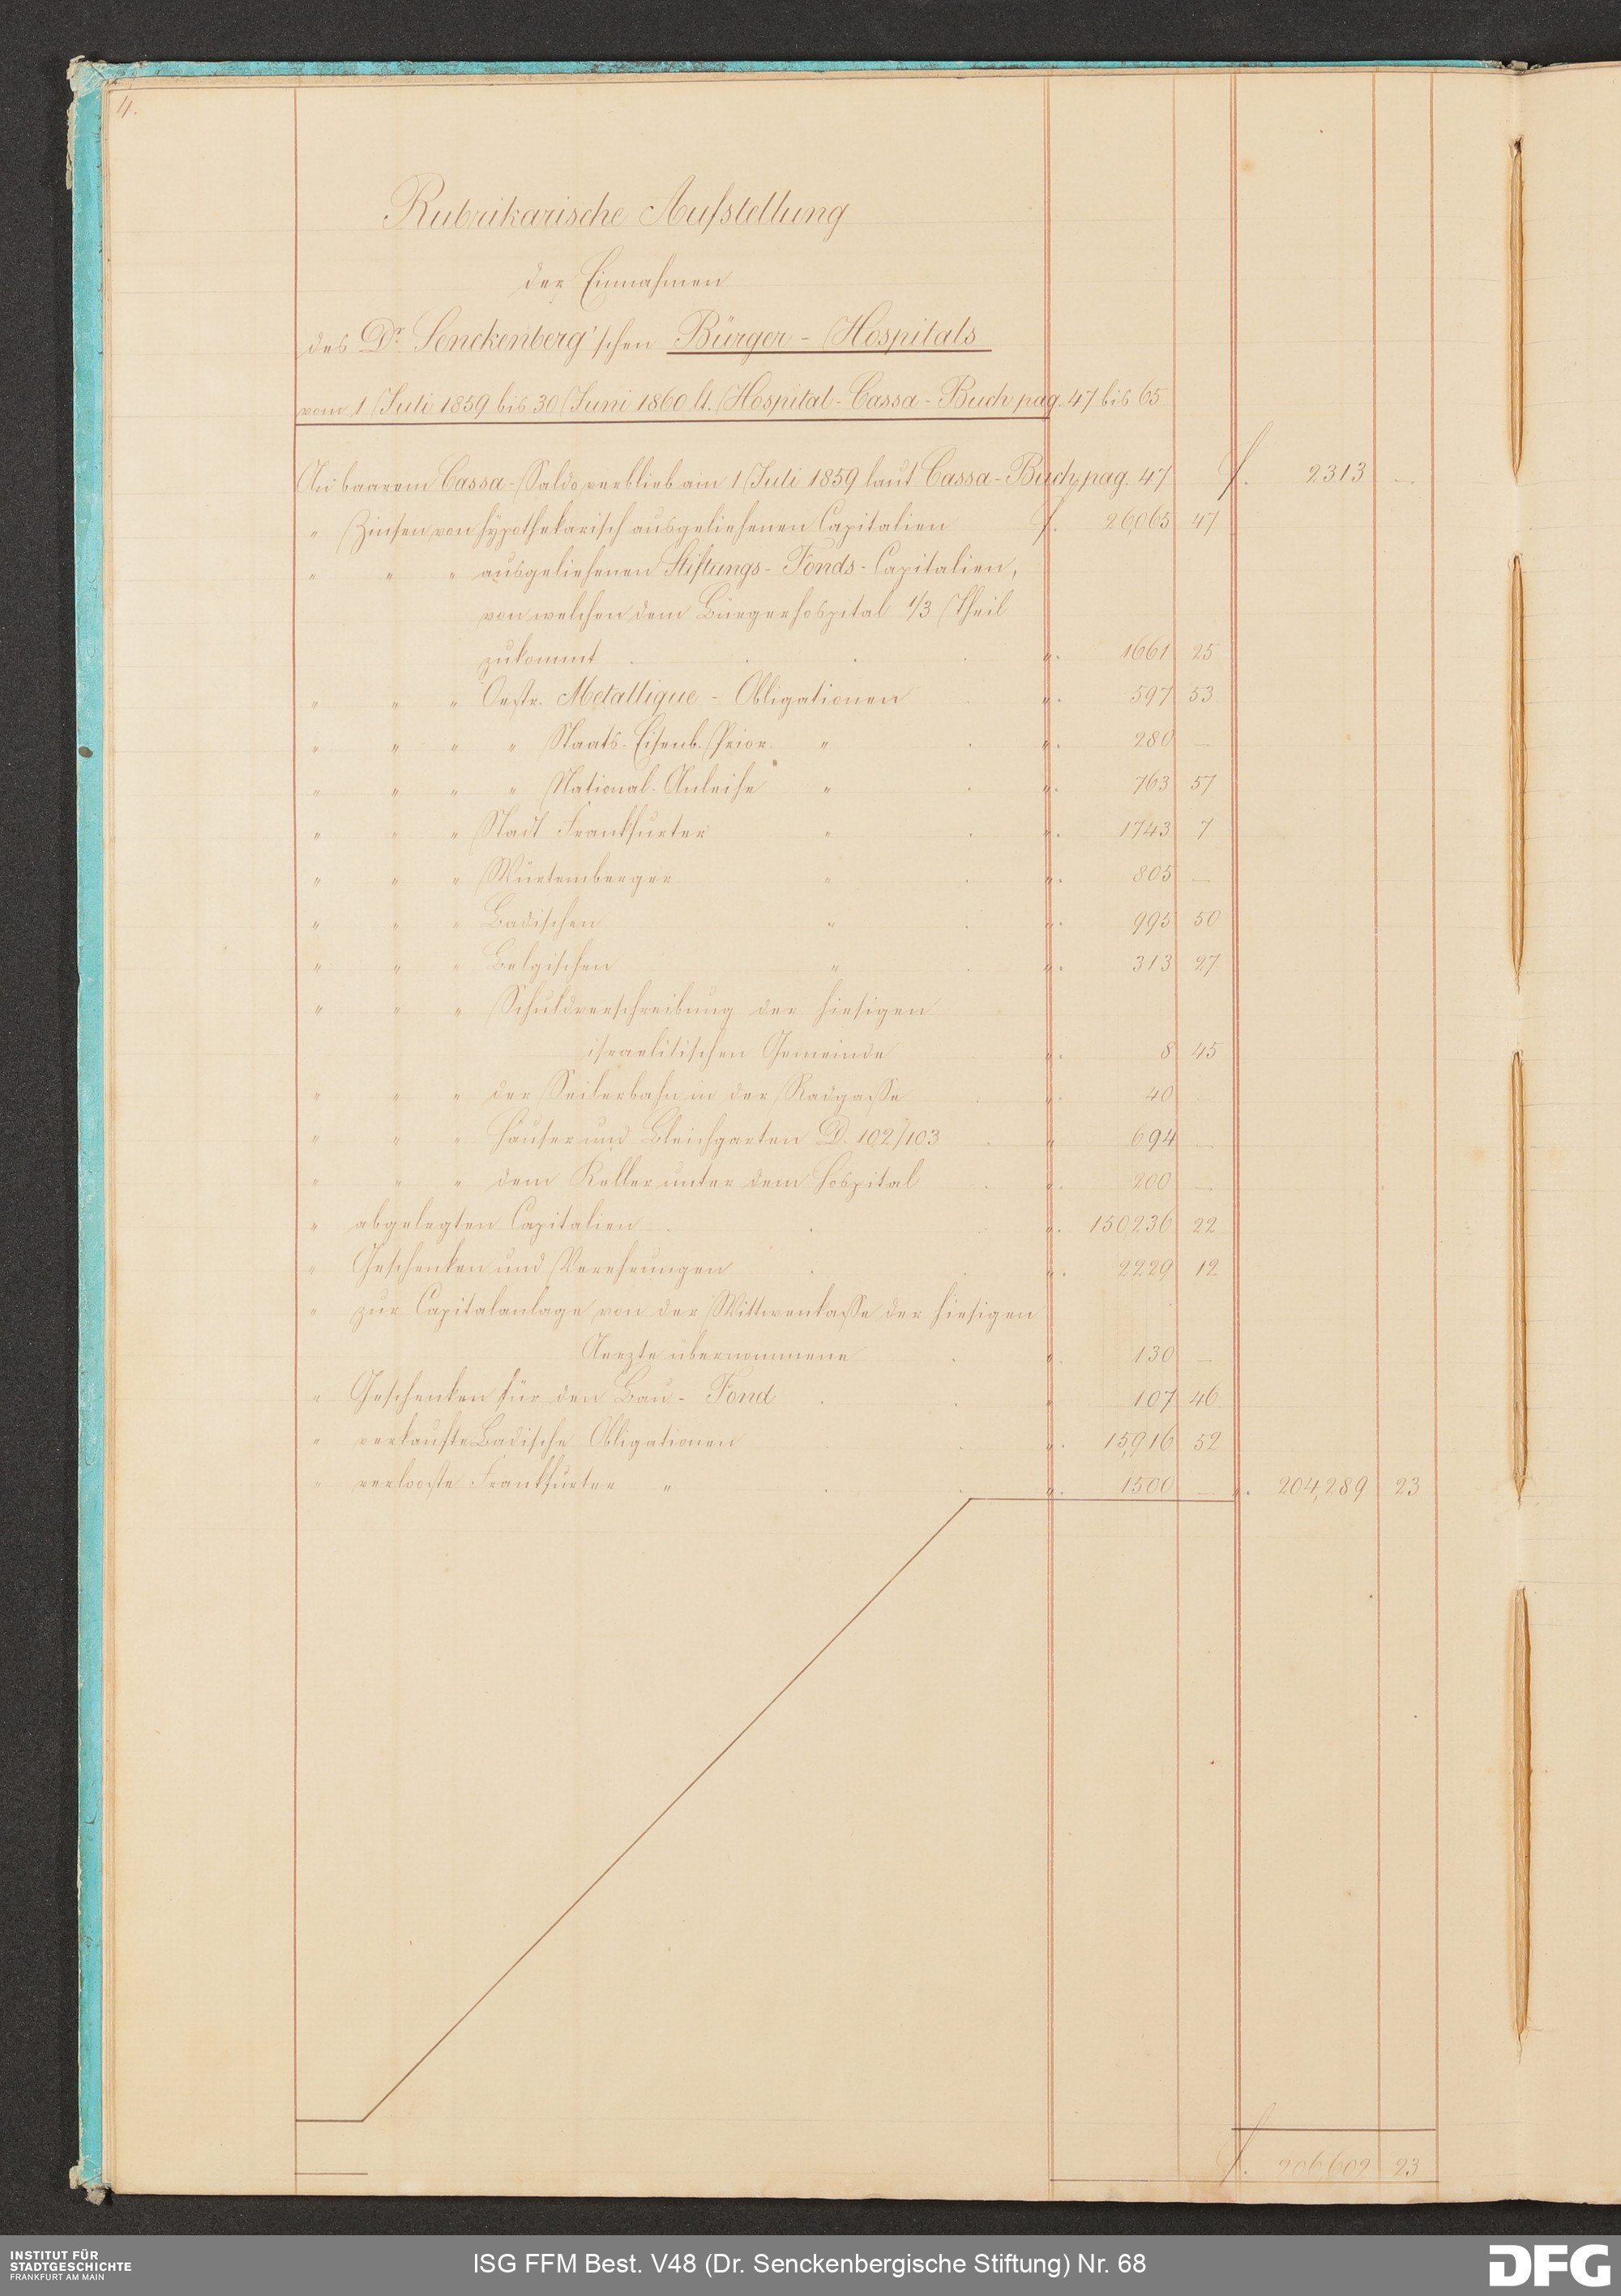 4.
Rubrikarische Aufstellung
der Einnahmen
des Dr. Senckenberg'schen Bürger-Hospitals
vom 1 Juli 1859 bis 30 Juni 1860 lt. Hospital-Cassa-Buch pag. 47 bis 65
An baarem Cassa-Saldo verblieb am 1 Juli 1859 laut Cassa-Buch pag. 47 f. 2313 —
" Zinsen von hypothekarisch ausgeliehenen Capitalien f. 26,065 47
" " " ausgeliehenen Stiftungs-Fonds-Capitalien,
von welchen dem Bürgerhospital 1/3 Theil
zukommt ". 1661 25
" " " Oestr. Metallique-Obligationen ". 597 53
" " " " Staats-Eisenb. Prior. " ". 280 —
" " " " National-Anleihe " ". 763 57
" " " Stadt Frankfurter " ". 1743 7
" " " Würtemberger " ". 805 —
" " " Badischen " ". 995 50
" " " Belgischen " ". 313 27
" " " Schuldverschreibung der hiesigen
israelitischen Gemeinde ". 8 45
" " " der Seilerbahn in der Radgasse ". 40
" " " Häuser und Bleichgarten D. 102/103 " 694 —
" " " dem Keller unter dem Hospital ". 200 —
" abgelegten Capitalien ". 150,236 22
" Geschenken und Verehrungen ". 2229 12
" zur Capitalanlage von der Wittwenkasse der hiesigen
Aerzte übernommene ". 130 —
" Geschenken für den Bau-Fond " 107 46
" verkaufte Badische Obligationen ". 15,916 52
" verlooste Frankfurter " ". 1500 — ". 204,289 23
f. 206,602 23
INSTITUT FÜR
STADTGESCHICHTE
FRANKFURT AM MAIN
ISG FFM Best. V48 (Dr. Senckenbergische Stiftung) Nr. 68
DFG